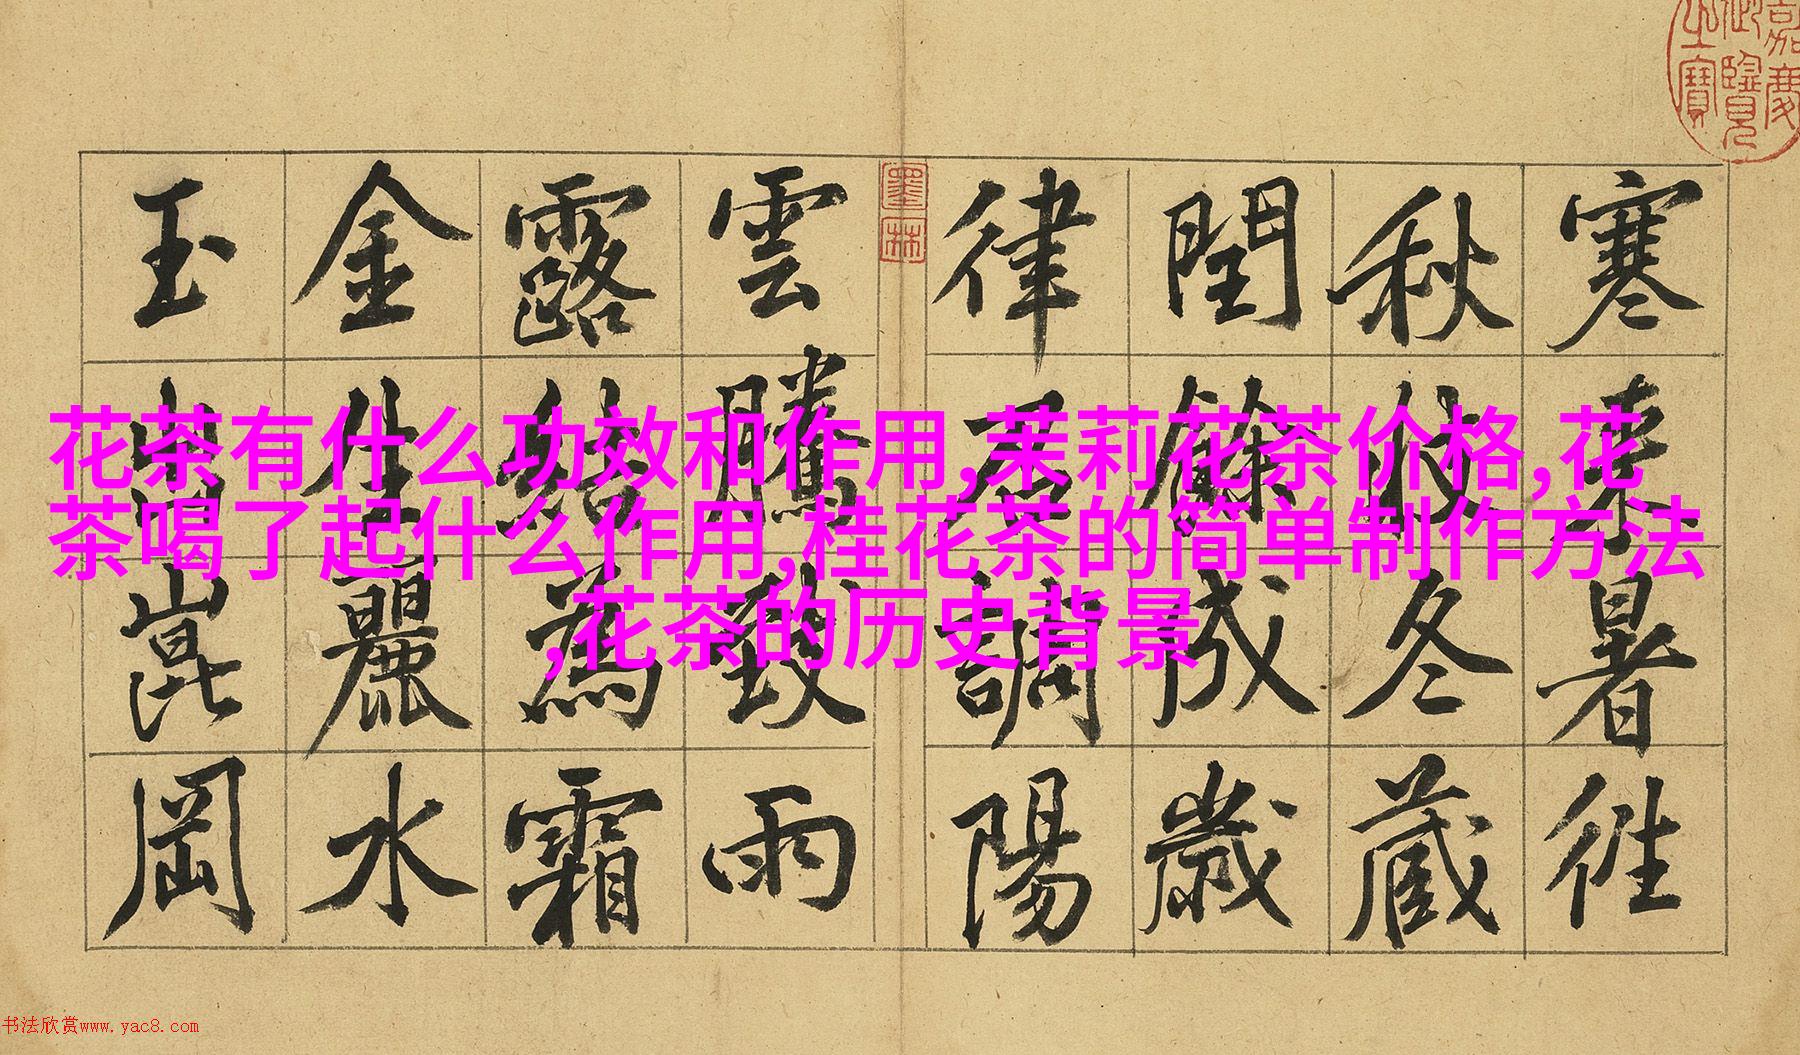 嘉慶
御覽
之寶
寒來暑往
秋收冬藏
閏餘成歲
律調陽
墨林
雲騰致雨
露結為霜
金生麗水
玉出崑岡
花茶有什么功效和作用,茉莉花茶价格,花
茶喝了起什么作用,桂花茶的简单制作方法
,花茶的历史背景
书法欣赏www.yac8.com